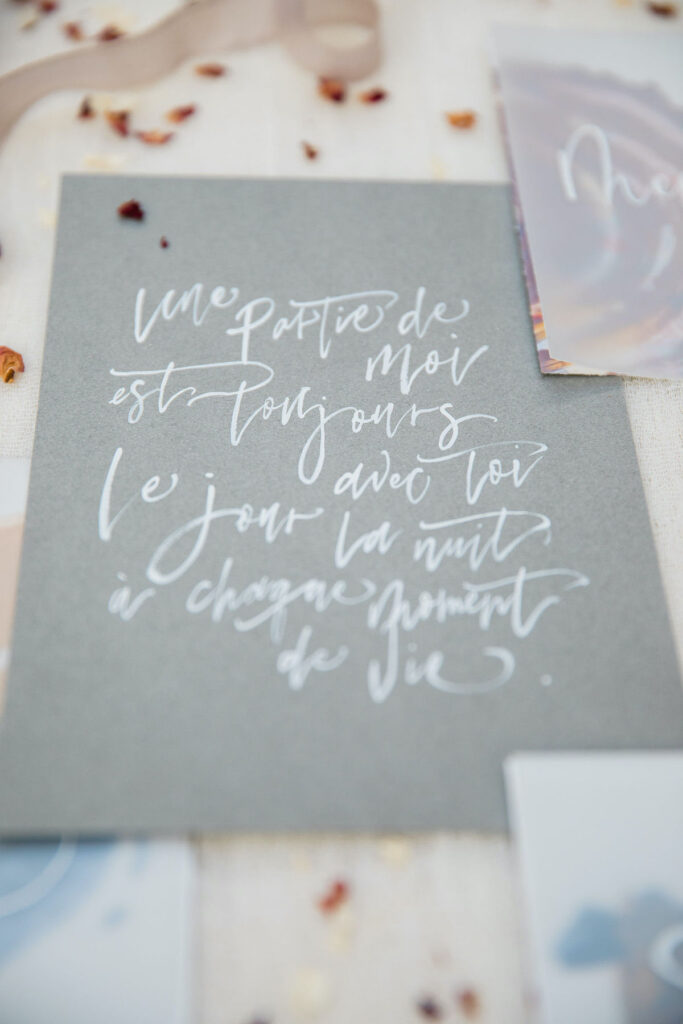 Une partie de
moi
est toujours
avec toi
Le jour la nuit
à chaque moment
de vie.